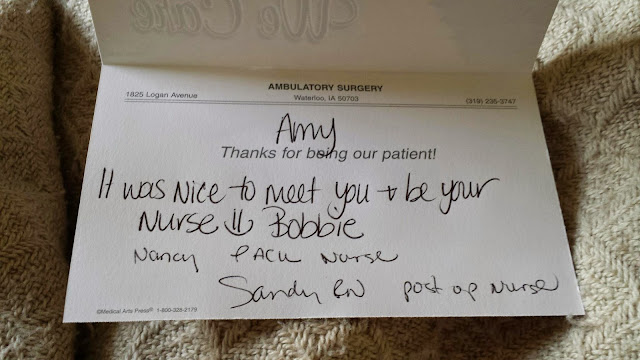 We Care
AMBULATORY SURGERY
1825 Logan Avenue Waterloo, IA 50703 (319) 235-3747
Amy
Thanks for being our patient!
It was nice to meet you + be your
Nurse Bobbie
Nancy PACU Nurse
Sandy RN post op Nurse
©Medical Arts Press® 1-800-328-2179